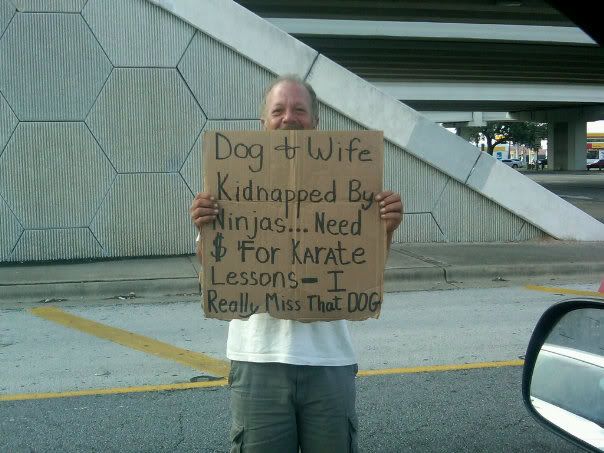 Dog & Wife
Kidnapped By
Ninjas... Need
$ For Karate
Lessons - I
Really Miss That DOG